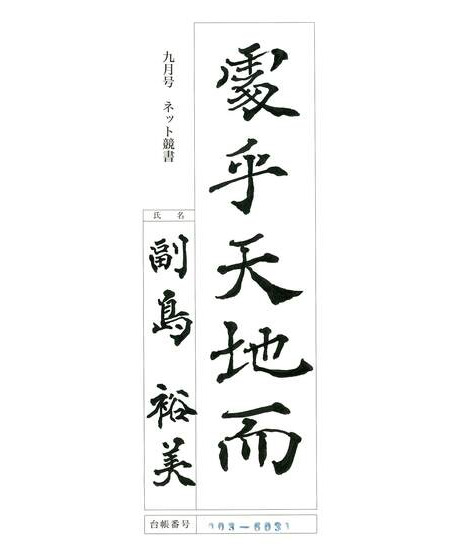 處乎天地而
九月号 ネット競書
氏 名
副島 裕美
台帳番号 103-6031